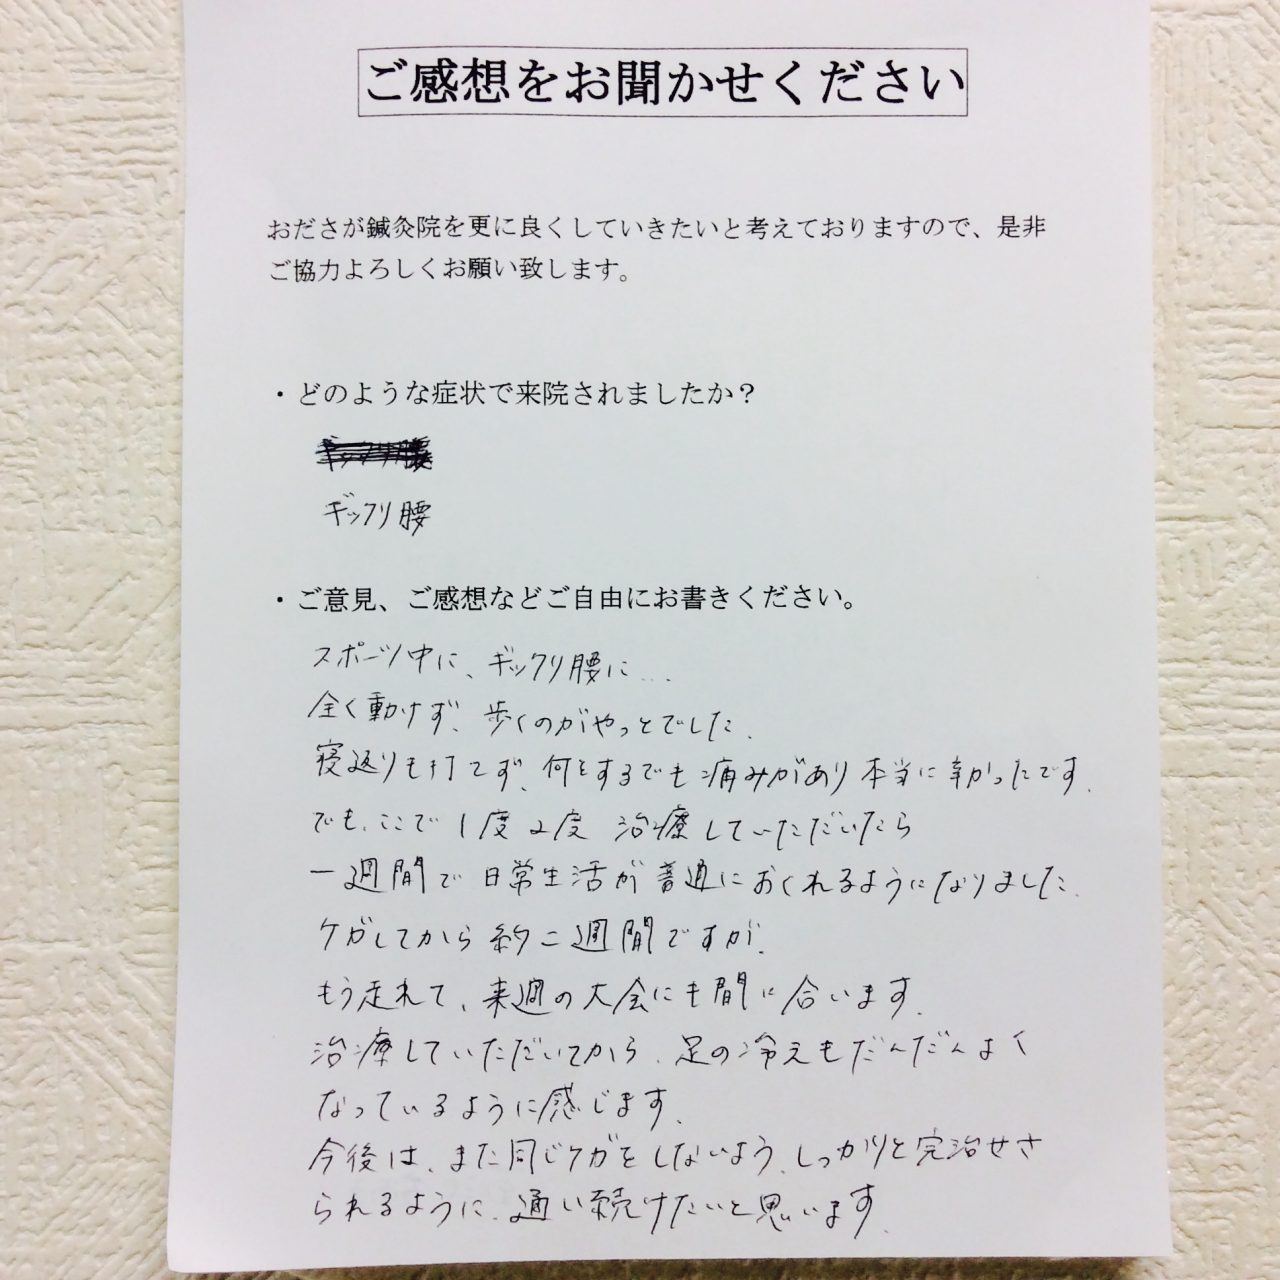 ご感想をお聞かせください
おださが鍼灸院を更に良くしていきたいと考えておりますので、是非
ご協力よろしくお願い致します。
・どのような症状で来院されましたか？
ギックリ腰
・ご意見、ご感想などご自由にお書きください。
スポーツ中に、ギックリ腰に...
全く動けず、歩くのがやっとでした。
寝返りも打てず、何をするでも痛みがあり本当に辛かったです。
でも、ここで1度2度 治療していただいたら
一週間で日常生活が普通におくれるようになりました。
ケガしてから約二週間ですが、
もう走れて、来週の大会にも間に合います。
治療していただいてから、足の冷えもだんだんよく
なっているように感じます。
今後は、また同じケガをしないよう、しっかりと完治せさ
られるように、通い続けたいと思います。